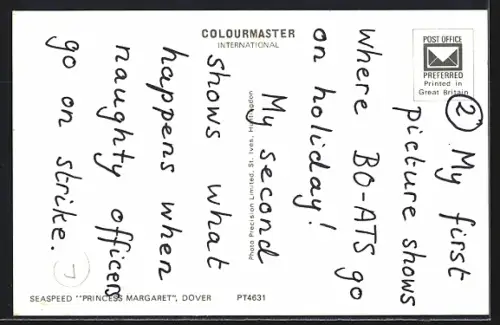 COLOURMASTER
INTERNATIONAL
POST OFFICE
PREFERRED
Printed in
Great Britain
② My first
picture shows
where BO-ATS go
on holiday!
My second
shows what
happens when
naughty officers
go on strike.
Photo Precision Limited, St. Ives, Huntingdon
SEASPEED "PRINCESS MARGARET", DOVER PT4631